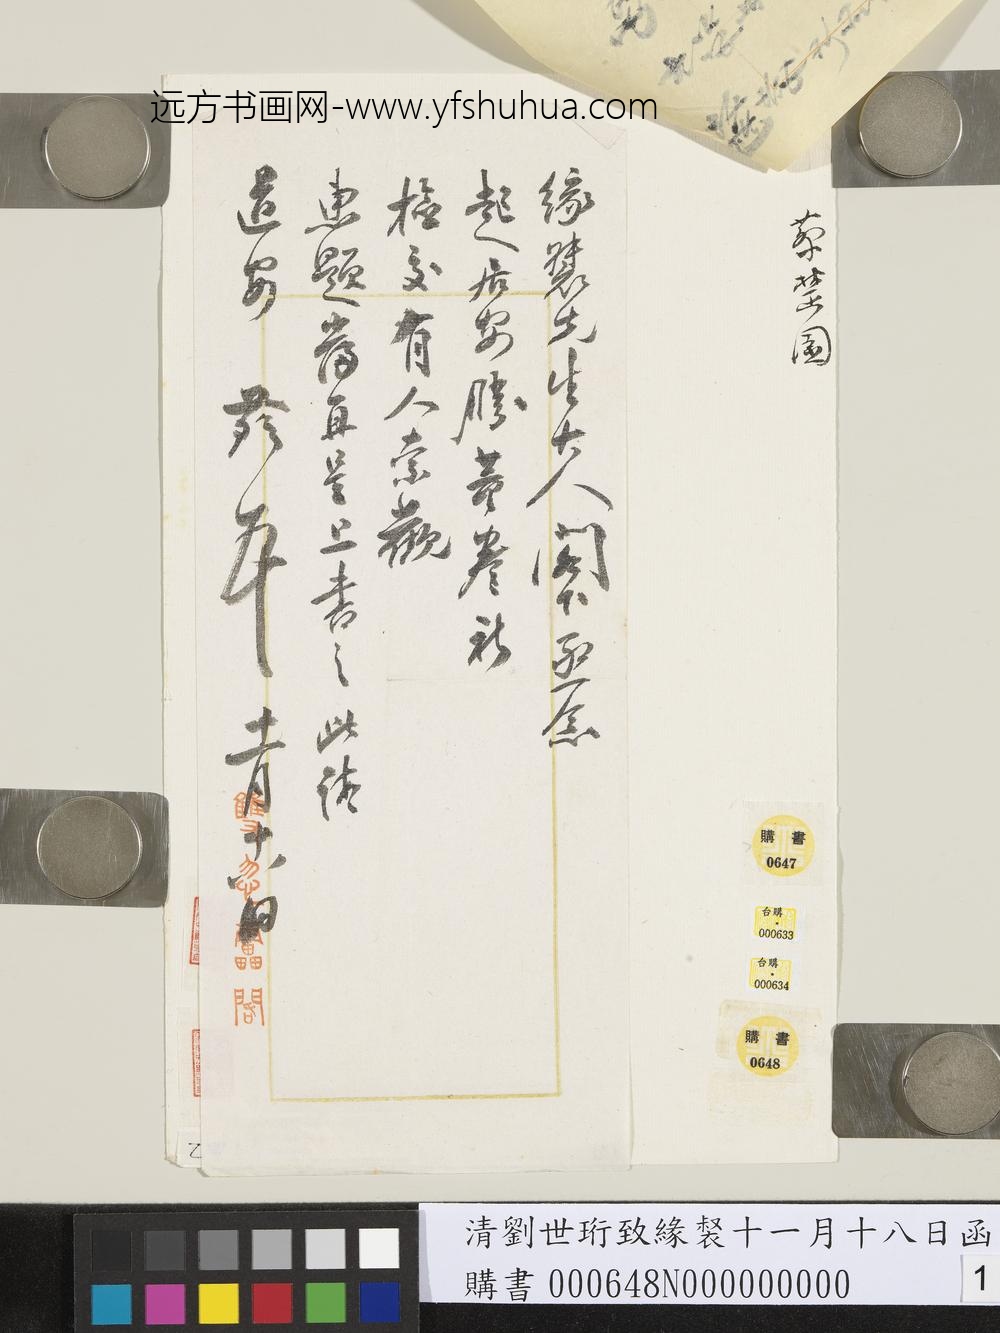 远方书画网-www.yfshuhua.com
蔡楚園
緣督先生大人閣下至念
起居安勝黃卷祈
檢交有人索觀
惠題當再呈上書之此請
道安
十一月十八日
購書
0647
台購
000633
台購
000634
購書
0648
乙
清劉世珩致緣裻十一月十八日函
購書 000648N000000000
1